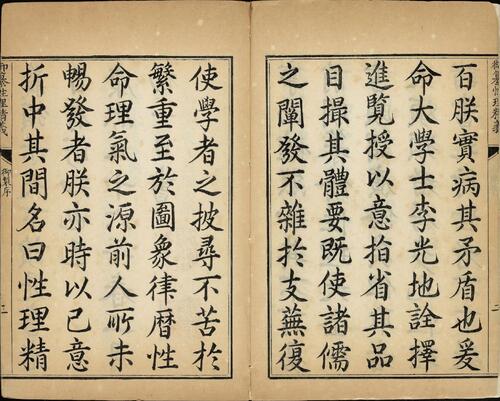 御纂性理精義
二
百朕實病其矛盾也爰
命大學士李光地詮擇
進覽授以意指省其品
目撮其體要既使諸儒
之闡發不雜於支蕪復
使學者之披尋不苦於
繁重至於圖象律曆性
命理氣之源前人所未
暢發者朕亦時以己意
折中其間名曰性理精
御纂性理精義
御製序
三